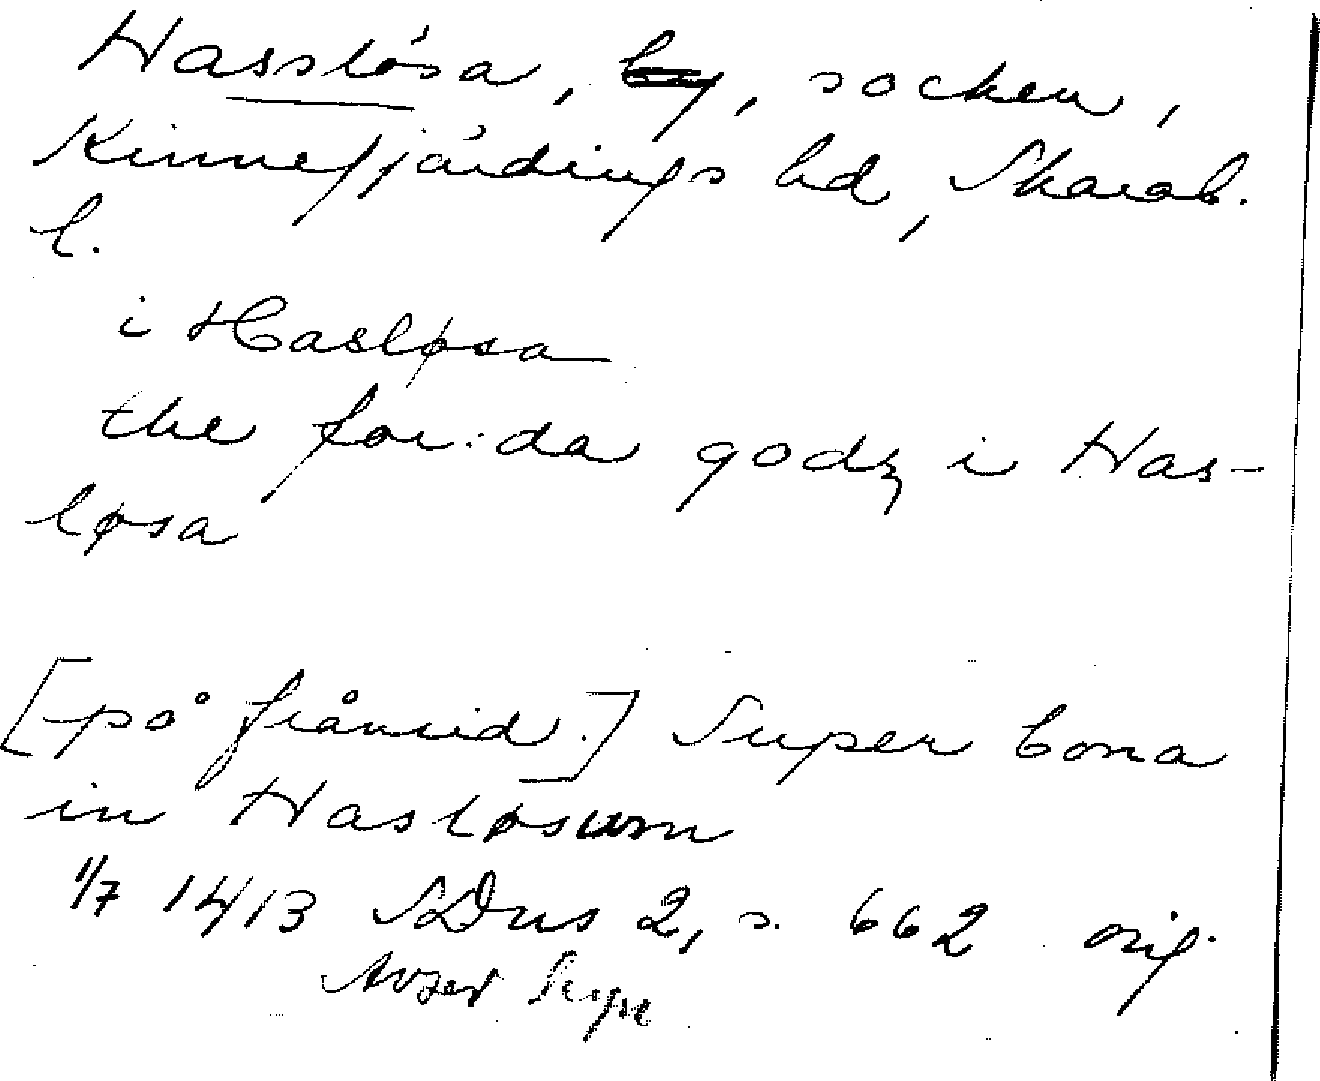 Hasslösa, by, socken,
Kinnefjärdings hd, Skarab.
l.
i Hasløsa
the for:da godz i Has-
løsa
[på frånsid.] Super bona
in Hasløsum
1/7 1413 SDns 2, s. 662 orig.
Avser